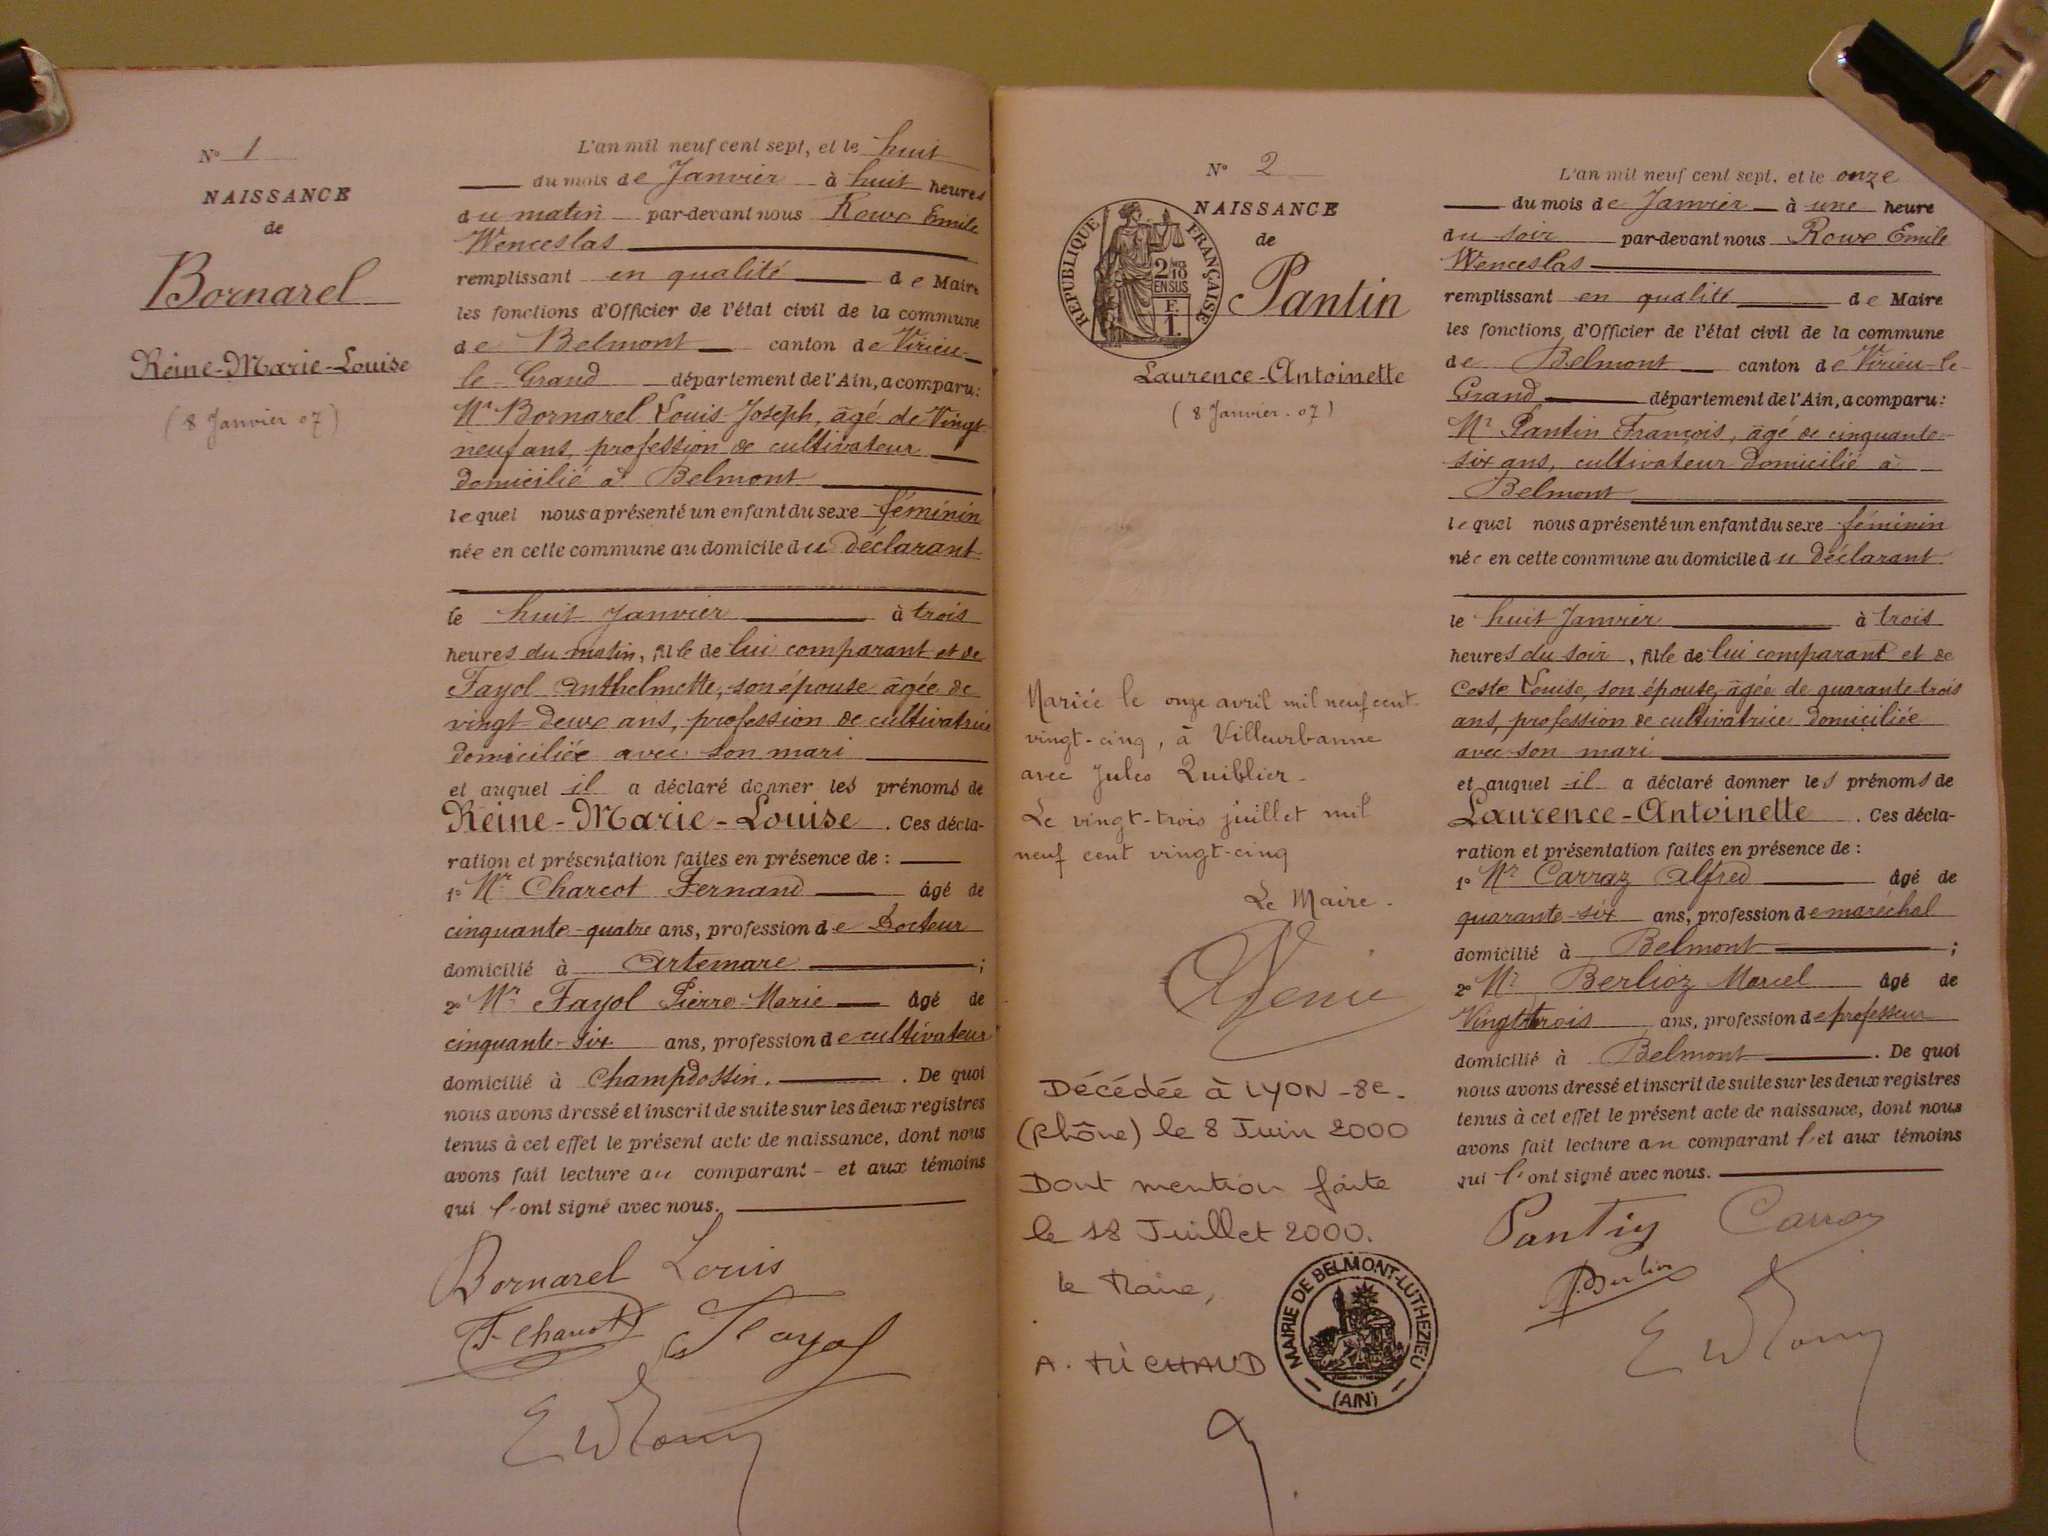 N° 1
NAISSANCE
de
Bornarel
Reine-Marie-Louise
(8 Janvier 07)
L'an mil neuf cent sept, et le huit
du mois de Janvier à huit heures
du matin par-devant nous Roux Emile
Wenceslas
remplissant en qualité de Maire
les fonctions d'Officier de l'état civil de la commune
de Belmont canton de Virieu-
le Grand département de l'Ain, a comparu:
Mr Bornarel Louis Joseph, âgé de Vingt
neuf ans, profession de cultivateur
domicilié à Belmont
lequel nous a présenté un enfant du sexe féminin
née en cette commune au domicile du déclarant
le huit Janvier à trois
heures du matin, fille de lui comparant et de
Fayol Anthelmette, son épouse âgée de
vingt-deux ans, profession de cultivatrice
domiciliée avec son mari
et auquel il a déclaré donner les prénoms de
Reine-Marie-Louise. Ces décla-
ration et présentation faites en présence de :
1° Mr Charcot Fernand âgé de
cinquante-quatre ans, profession de Docteur
domicilié à Artemare ;
2° Mr Fayol Pierre-Marie âgé de
cinquante-six ans, profession de cultivateur
domicilié à Champdossin. . De quoi
nous avons dressé et inscrit de suite sur les deux registres
tenus à cet effet le présent acte de naissance, dont nous
avons fait lecture au comparant et aux témoins
qui l'ont signé avec nous.
Bornarel Louis
F Charcot Fayol
N° 2
NAISSANCE
de
RÉPUBLIQUE FRANÇAISE
2/10
EN SUS
F.
1.
Pantin
Laurence-Antoinette
(8 Janvier. 07)
Mariée le onze avril mil neuf cent-
vingt-cinq, à Villeurbanne
avec Jules Quiblier-
Le vingt-trois juillet mil
neuf cent vingt-cinq
Le Maire.
Décédée à LYON-8e-
(Rhône) le 8 Juin 2000
Dont mention faite
le 18 Juillet 2000.
le Maire,
MAIRIE DE BELMONT-LUTHEZIEU
(AIN)
L'an mil neuf cent sept, et le onze
du mois de Janvier à une heure
du soir par-devant nous Roux Emile
Wenceslas
remplissant en qualité de Maire
les fonctions d'Officier de l'état civil de la commune
de Belmont canton de Virieu-le-
Grand département de l'Ain, a comparu:
Mr Pantin François, âgé de cinquante-
six ans, cultivateur domicilié à
Belmont
lequel nous a présenté un enfant du sexe féminin
née en cette commune au domicile du déclarant
le huit Janvier à trois
heures du soir, fille de lui comparant et de
Coste Louise, son épouse, âgée de quarante trois
ans, profession de cultivatrice domiciliée
avec son mari
et auquel il a déclaré donner les prénoms de
Laurence-Antoinette. Ces décla-
ration et présentation faites en présence de :
1° Mr Carraz Alfred âgé de
quarante-six ans, profession de maréchal
domicilié à Belmont ;
2° Mr Berlioz Marcel âgé de
Vingt trois ans, profession de professeur
domicilié à Belmont . De quoi
nous avons dressé et inscrit de suite sur les deux registres
tenus à cet effet le présent acte de naissance, dont nous
avons fait lecture au comparant et aux témoins
qui l'ont signé avec nous.
Pantin Carraz